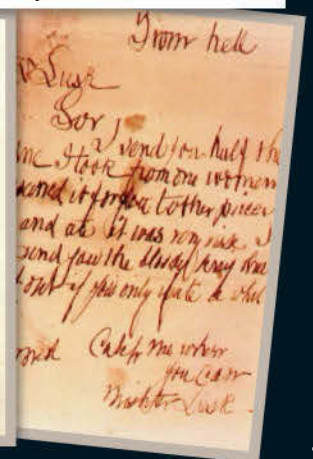 From hell
Lusk
Sor
I send you half the
ne I took from one women
served it for you tother piece
and ate it was very nise I
send you the bloody knif that
out if you only wate a whil
ned Catch me when
you can
Mishter Lusk